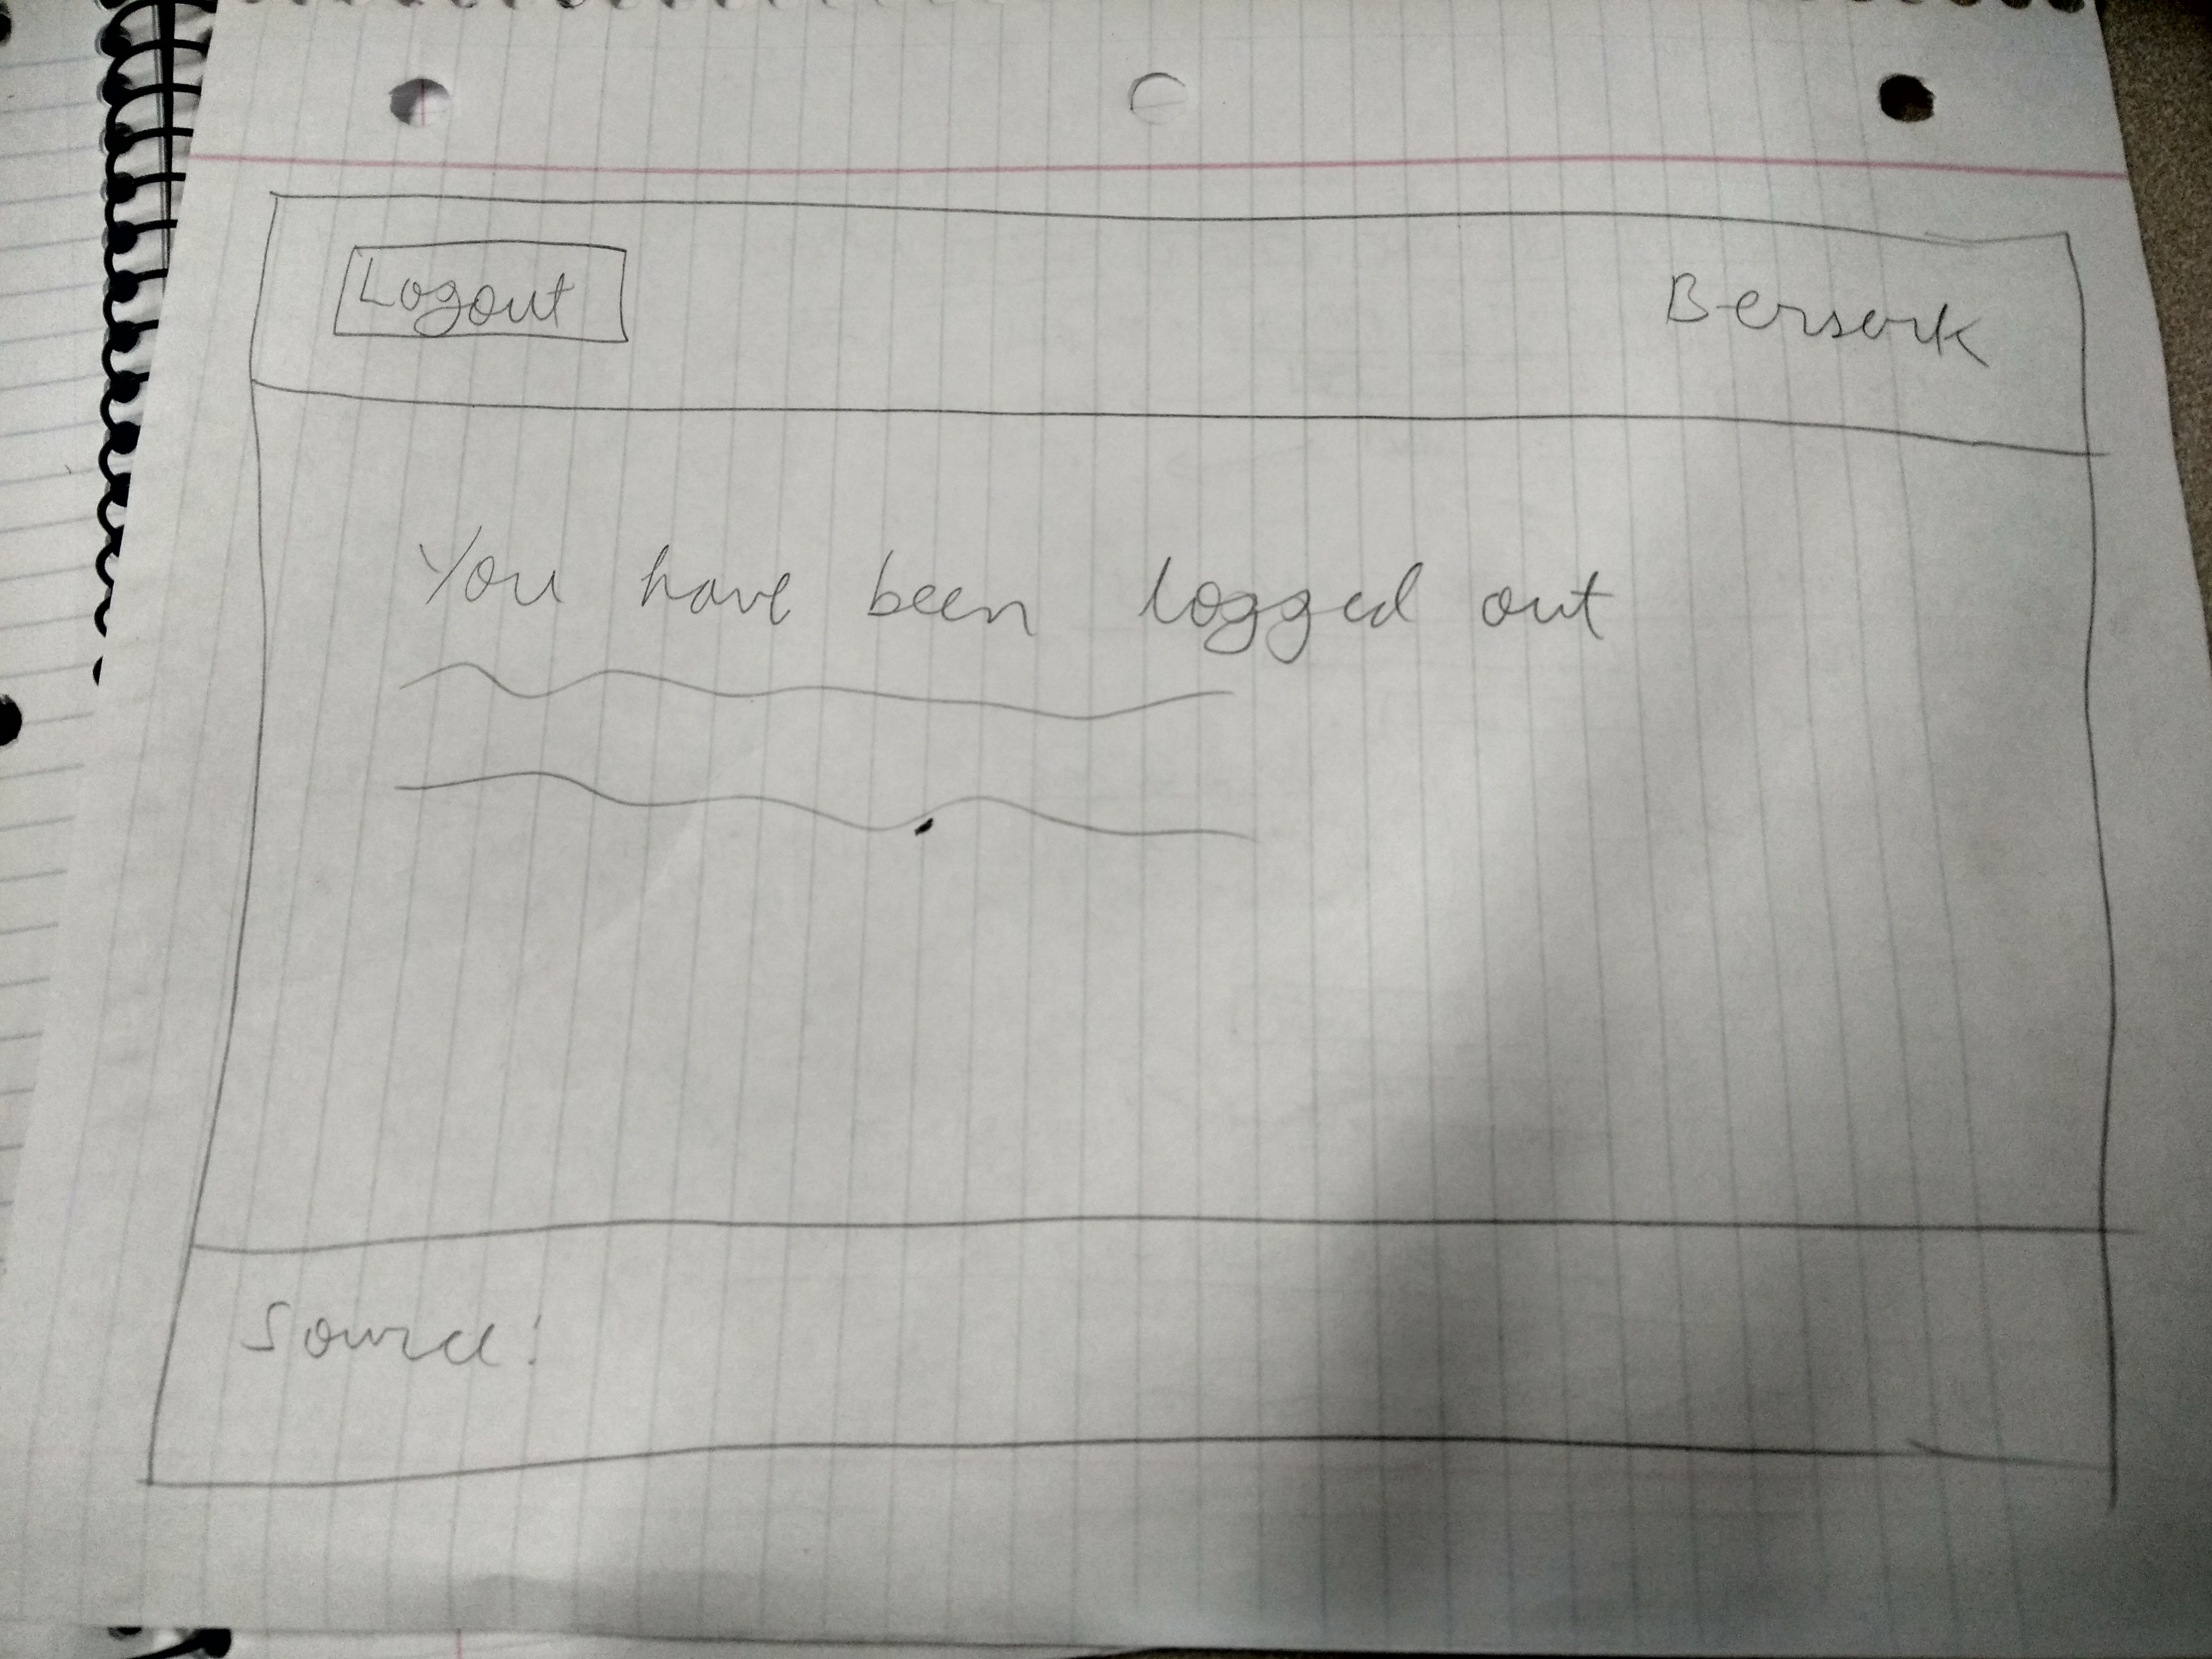 Logout
Berserk
You have been logged out
Source: